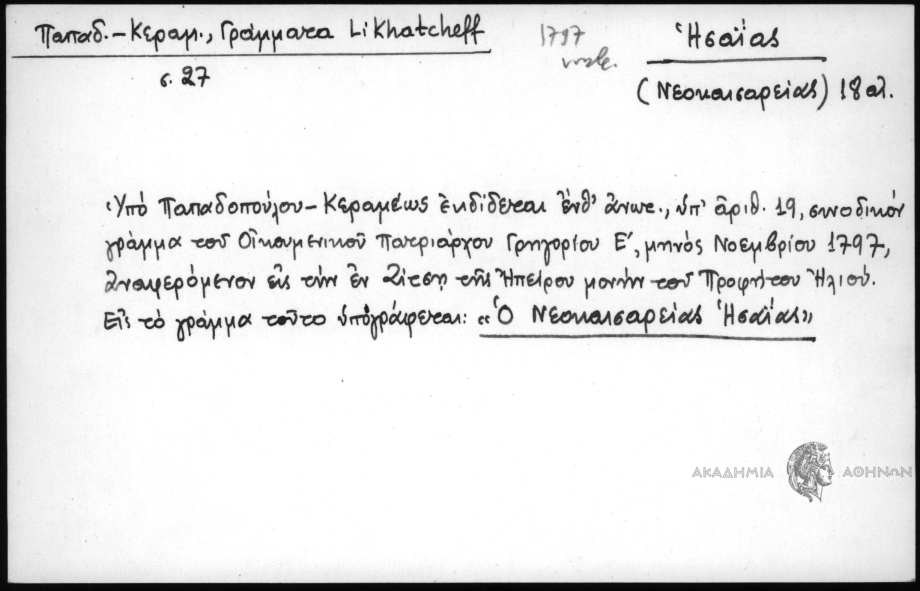 Παπαδ.-Κεραμ., Γράμματα Likhatcheff
1797
Ἡσαΐας
σ. 27
(Νεοκαισαρείας) 18 αἰ.
Ὑπό Παπαδοπούλου-Κεραμέως ἐκδίδεται ἔνθ' ἄνωτ., ὑπ' ἀριθ. 19, συνοδικόν
γράμμα τοῦ Οἰκουμενικοῦ Πατριάρχου Γρηγορίου Ε', μηνός Νοεμβρίου 1797,
ἀναφερόμενον εἰς τήν ἐν Ζίτσῃ τῆς Ἠπείρου μονήν τοῦ Προφήτου Ἠλιού.
Εἰς τό γράμμα τοῦτο ὑπογράφεται: «Ὁ Νεοκαισαρείας Ἡσαΐας»
ΑΚΑΔΗΜΙΑ ΑΘΗΝΩΝ